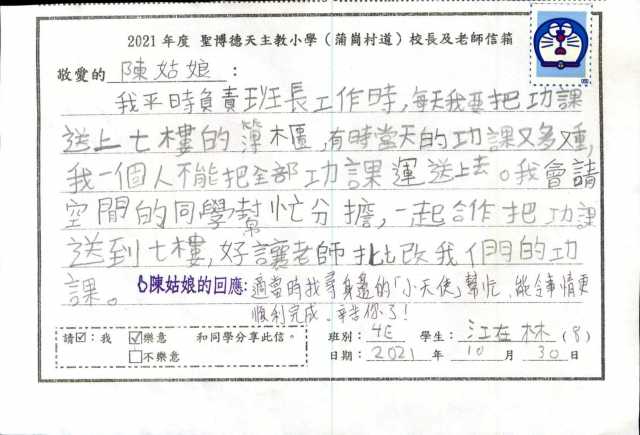 2021年度 聖博德天主教小學（蒲崗村道）校長及老師信箱
敬愛的 陳姑娘：
我平時負責班長工作時，每天我要把功課
送上七樓的簿櫃，有時當天的功課又多又重，
我一個人不能把全部功課運送上去。我會請
空閒的同學幫忙分擔，一起合作把功課
送到七樓，好讓老師批改我們的功
課。 陳姑娘的回應：適當時找尋身邊的「小天使」幫忙，能令事情更
順利完成。辛苦你了！
請☑：我 ☑樂意 和同學分享此信。 班別：4E 學生：江在林（8）
□不樂意 日期：2021年10月30日